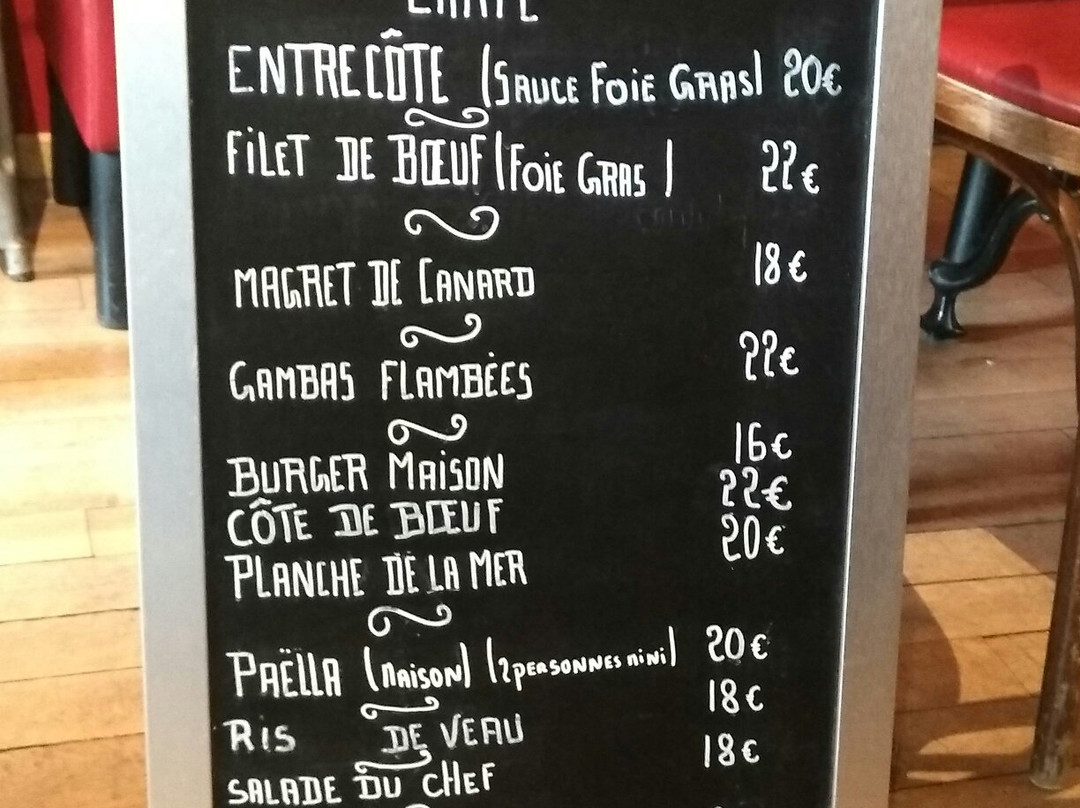 CARTE
ENTRECÔTE (SAUCE FOIE GRAS) 20€
FILET DE BŒUF (FOIE GRAS) 22€
MAGRET DE CANARD 18€
GAMBAS FLAMBÉES 22€
BURGER MAISON 16€
CÔTE DE BŒUF 22€
PLANCHE DE LA MER 20€
PAËLLA (MAISON) (2 PERSONNES MINI) 20€
RIS DE VEAU 18€
SALADE DU CHEF 18€